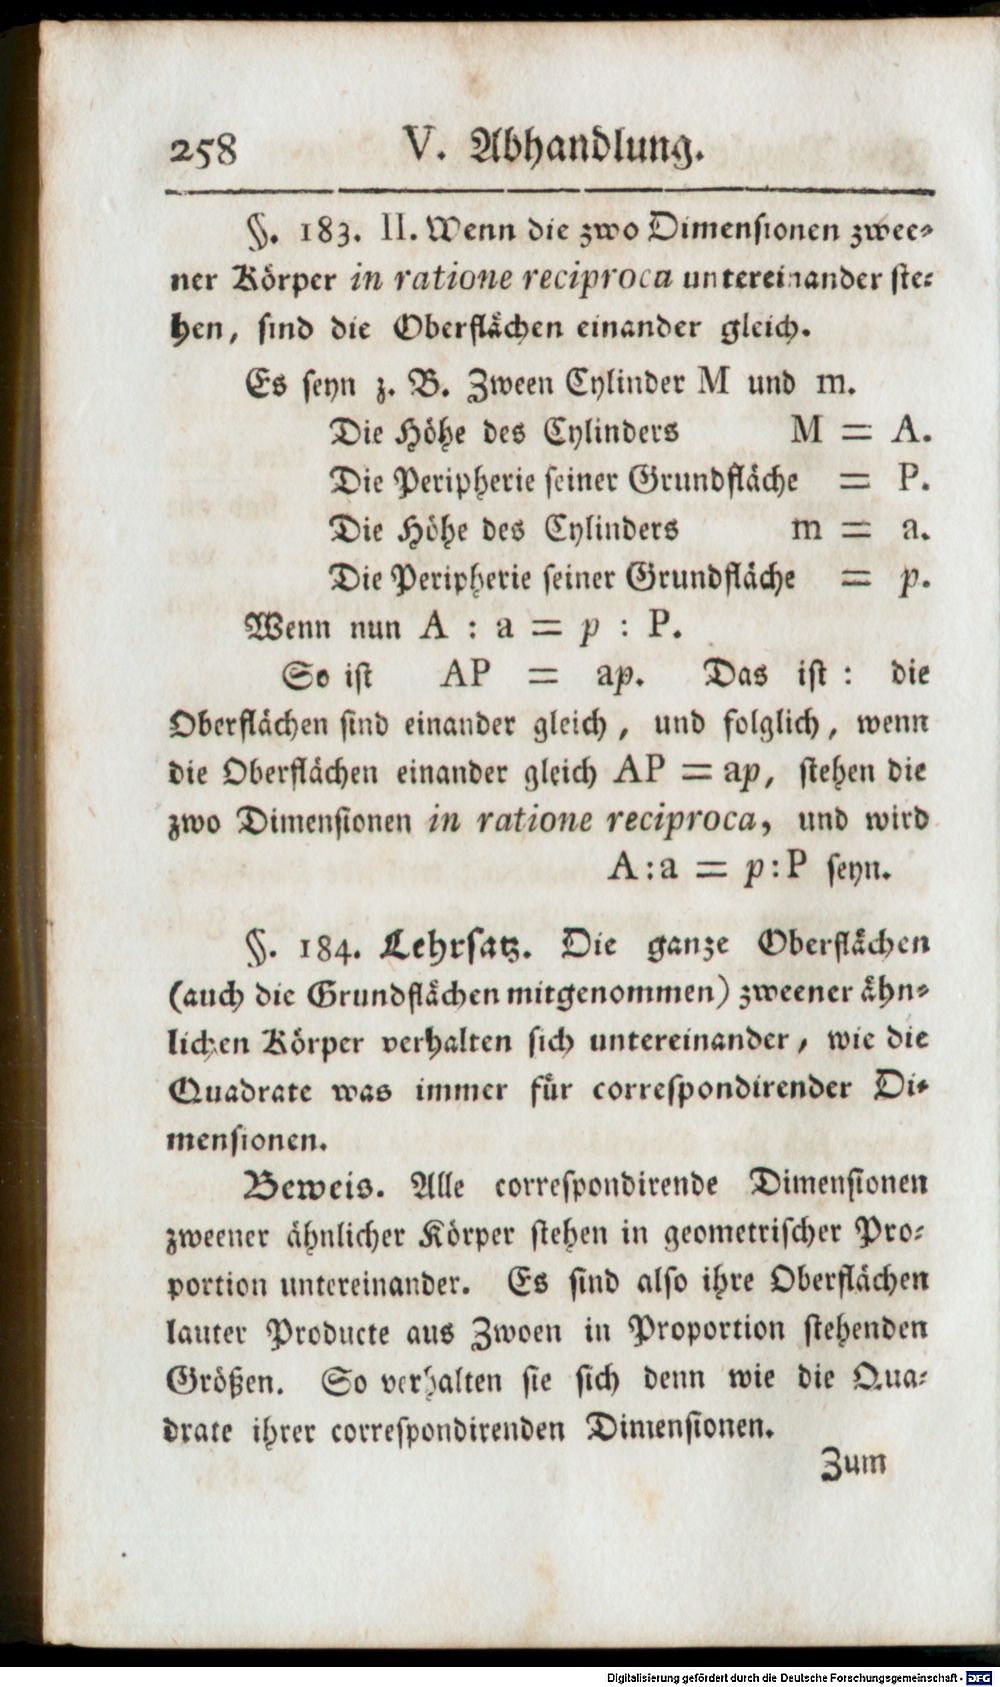 258 V. Abhandlung.
§. 183. II. Wenn die zwo Dimensionen zwee-
ner Körper in ratione reciproca untereinander ste-
hen, sind die Oberflächen einander gleich.
Es seyn z. B. Zween Cylinder M und m.
Die Höhe des Cylinders M = A.
Die Peripherie seiner Grundfläche = P.
Die Höhe des Cylinders m = a.
Die Peripherie seiner Grundfläche = p.
Wenn nun A : a = p : P.
So ist AP = ap. Das ist: die
Oberflächen sind einander gleich, und folglich, wenn
die Oberflächen einander gleich AP = ap, stehen die
zwo Dimensionen in ratione reciproca, und wird
A:a = p:P seyn.
§. 184. Lehrsatz. Die ganze Oberflächen
(auch die Grundflächen mitgenommen) zweener ähn-
lichen Körper verhalten sich untereinander, wie die
Quadrate was immer für correspondirender Di-
mensionen.
Beweis. Alle correspondirende Dimensionen
zweener ähnlicher Körper stehen in geometrischer Pro-
portion untereinander. Es sind also ihre Oberflächen
lauter Producte aus Zwoen in Proportion stehenden
Größen. So verhalten sie sich denn wie die Qua-
drate ihrer correspondirenden Dimensionen.
Zum
Digitalisierung gefördert durch die Deutsche Forschungsgemeinschaft - DFG